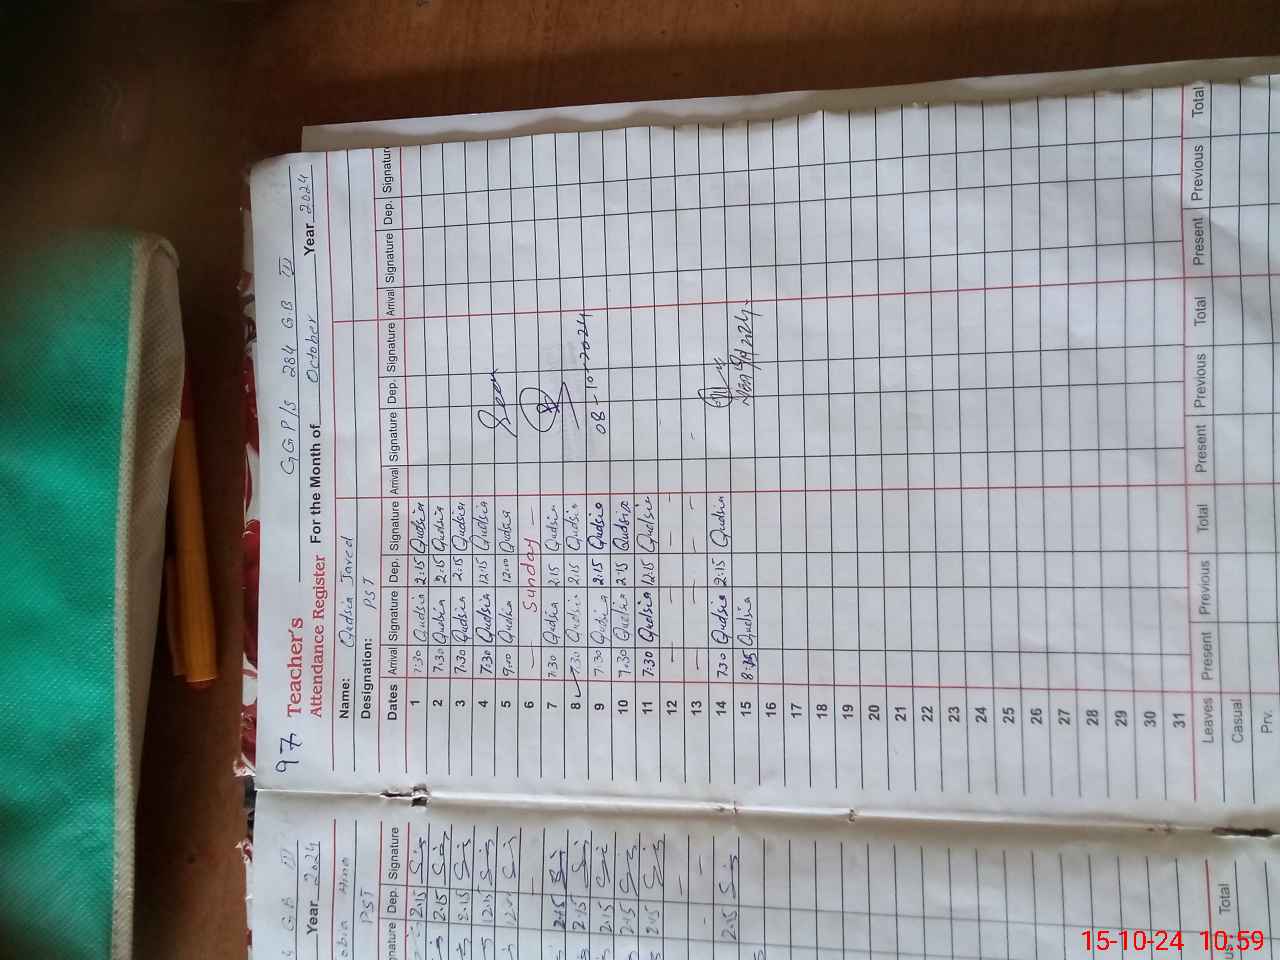 97
GGP/S 284 GB III
Teacher's
Attendance Register For the Month of October Year 2024
Name: Qudsia Javed
Designation: PST
Dates Arrival Signature Dep. Signature Arrival Signature Dep. Signature Arrival Signature Dep. Signature
1 7:30 Qudsia 2:15 Qudsia
2 7:30 Qudsia 2:15 Qudsia
3 7:30 Qudsia 2:15 Qudsia
4 7:30 Qudsia 12:15 Qudsia
5 9:00 Qudsia 12:00 Qudsia Seen
6 — Sunday —
7 7:30 Qudsia 2:15 Qudsia
8 7:30 Qudsia 2:15 Qudsia
9 7:30 Qudsia 2:15 Qudsia 08-10-2024
10 7:30 Qudsia 2:15 Qudsia
11 7:30 Qudsia 12:15 Qudsia
12 — — — —
13 — — — —
14 7:30 Qudsia 2:15 Qudsia
15 8:15 Qudsia
16
17
18
19
20
21
22
23
24
25
26
27
28
29
30
31
Leaves Present Previous Total Present Previous Total Present Previous Total
Casual
Prv.
GB III
Year 2024
Hina
PST
Dep. Signature
2:15
2:15
2:15
12:15
12:00
—
2:15
2:15
2:15
2:15
2:15
— —
— —
2:15
Total
15-10-24 10:59